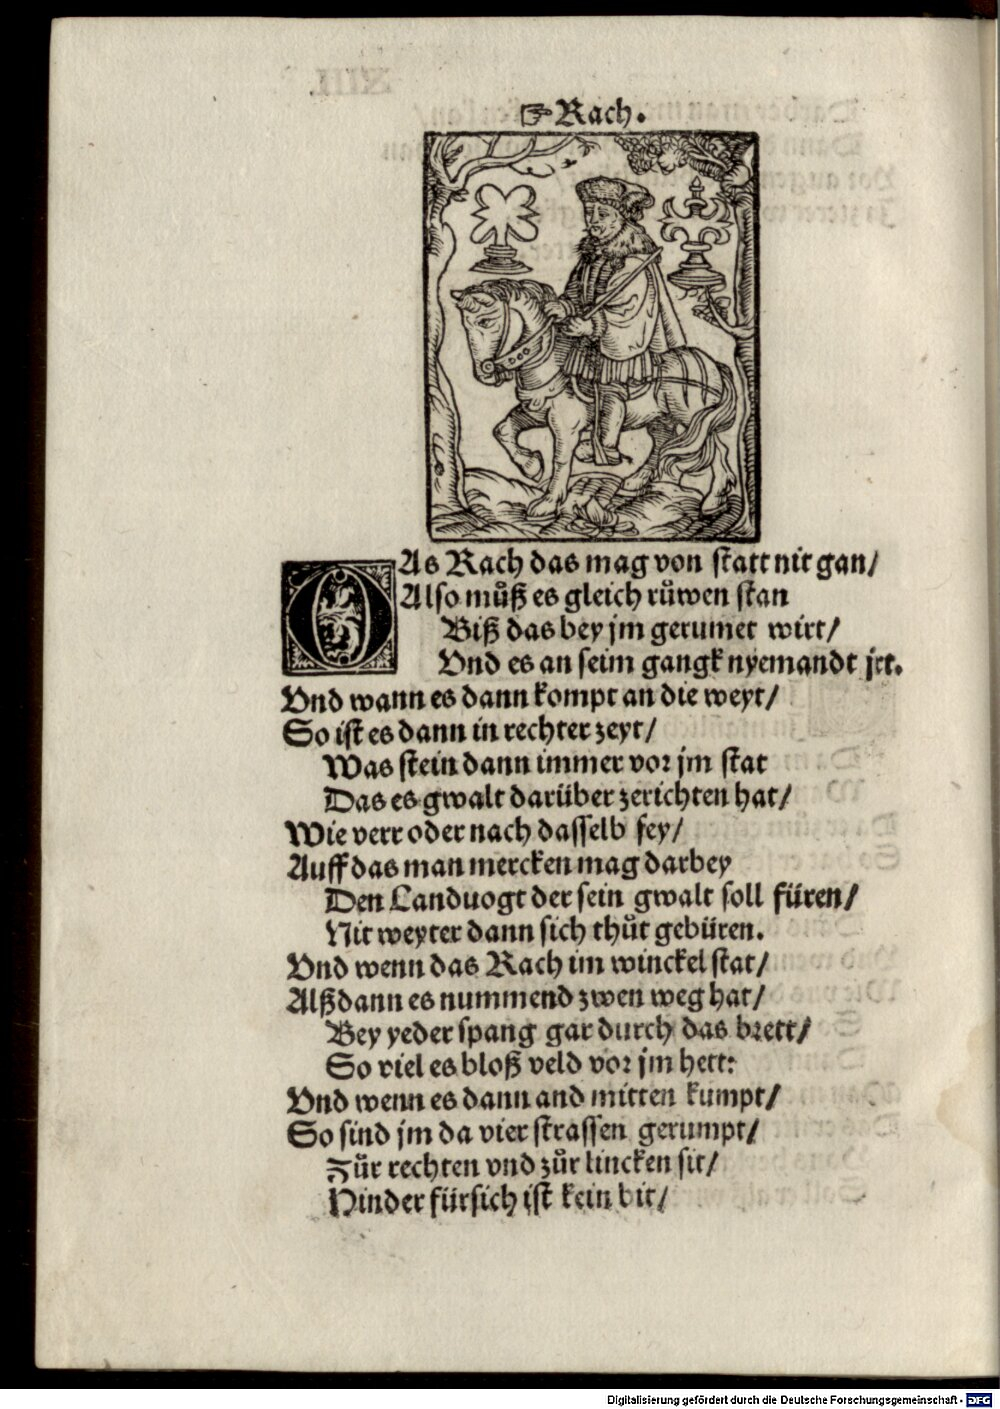 ☞Rach.
DAs Rach das mag von statt nit gan/
Also můß es gleich růwen stan
Biß das bey jm gerumet wirt/
Vnd es an seim gangk nyemandt jrt.
Vnd wann es dann kompt an die weyt/
So ist es dann in rechter zeyt/
Was stein dann immer vor jm stat
Das es gwalt darüber zerichten hat/
Wie verr oder nach dasselb sey/
Auff das man mercken mag darbey
Den Landuogt der sein gwalt soll füren/
Nit weyter dann sich thůt gebüren.
Vnd wenn das Rach im winckel stat/
Alßdann es nummend zwen weg hat/
Bey yeder spang gar durch das brett/
So viel es bloß veld vor jm hett:
Vnd wenn es dann and mitten kumpt/
So sind jm da vier strassen gerumpt/
Zůr rechten vnd zůr lincken sit/
Hinder fürsich ist kein bit/
Digitalisierung gefördert durch die Deutsche Forschungsgemeinschaft - DFG